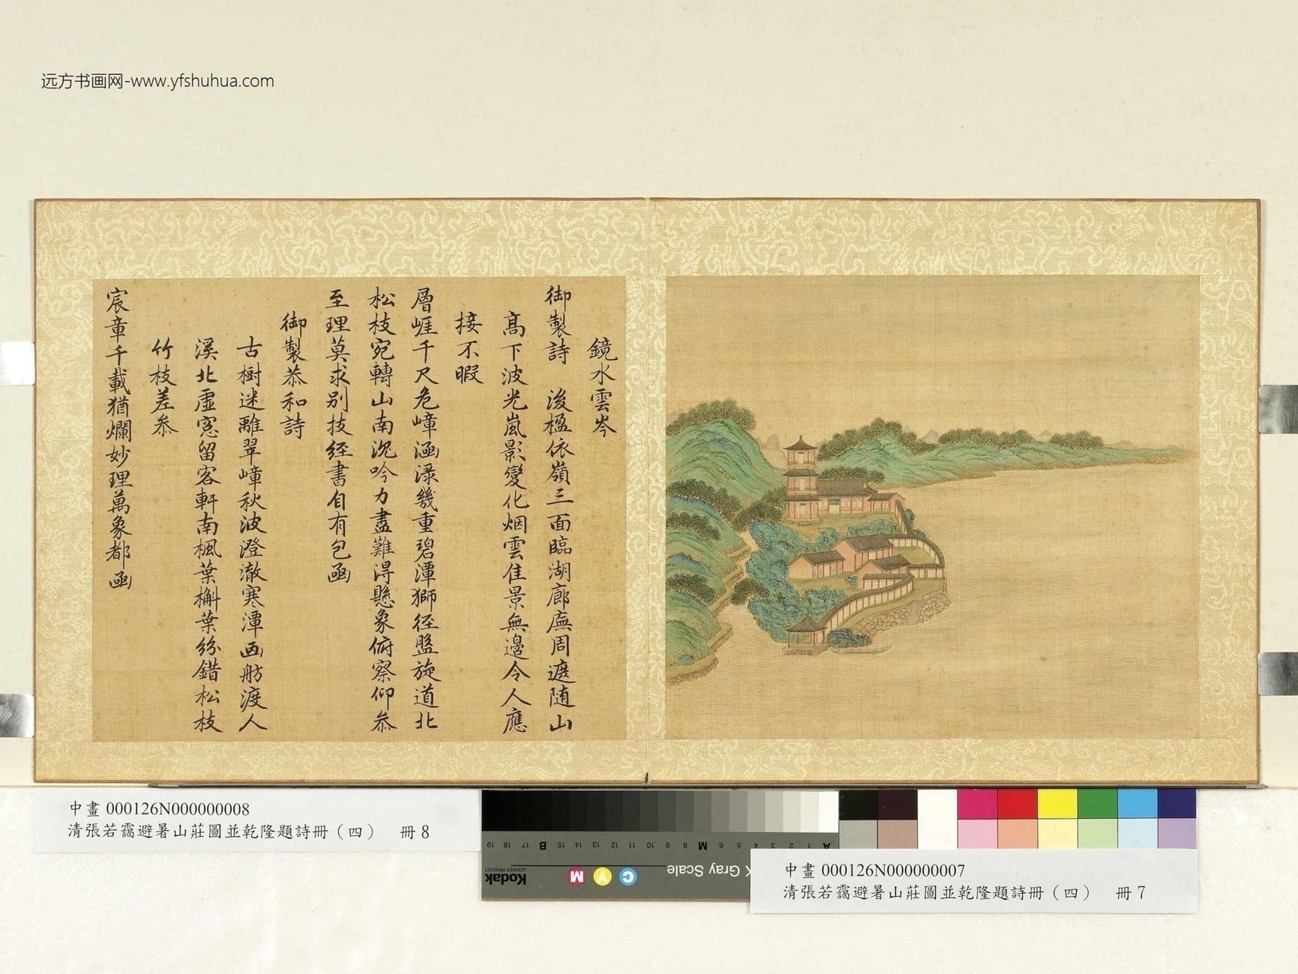 远方书画网-www.yfshuhua.com
鏡水雲岑
御製詩　後楹依嶺三面臨湖廊廡周遮随山
高下波光嵐影變化烟雲佳景無邊令人應
接不暇
層崕千尺危嶂涵渌幾重碧潭獅徑盤旋道北
松枝宛轉山南沉吟力盡難得懸象俯察仰叅
至理莫求别技經書自有包函
御製恭和詩
古樹迷離翠嶂秋波澄澈寒潭画舫渡人
溪北虚窓留客軒南楓葉槲葉紛錯松枝
竹枝差叅
宸章千載猶爛妙理萬象都函
中畫 000126N000000008
清張若靄避暑山莊圖並乾隆題詩冊（四）　冊 8
A 1 2 3 4 5 6 M 8 9 10 11 12 13 14 15 B 17 18 19
Gray Scale
C Y M
Kodak
LICENSED PRODUCT
中畫 000126N000000007
清張若靄避暑山莊圖並乾隆題詩冊（四）　冊 7